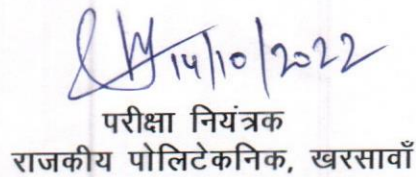 14/10/2022
परीक्षा नियंत्रक
राजकीय पोलिटेकनिक, खरसावाँ